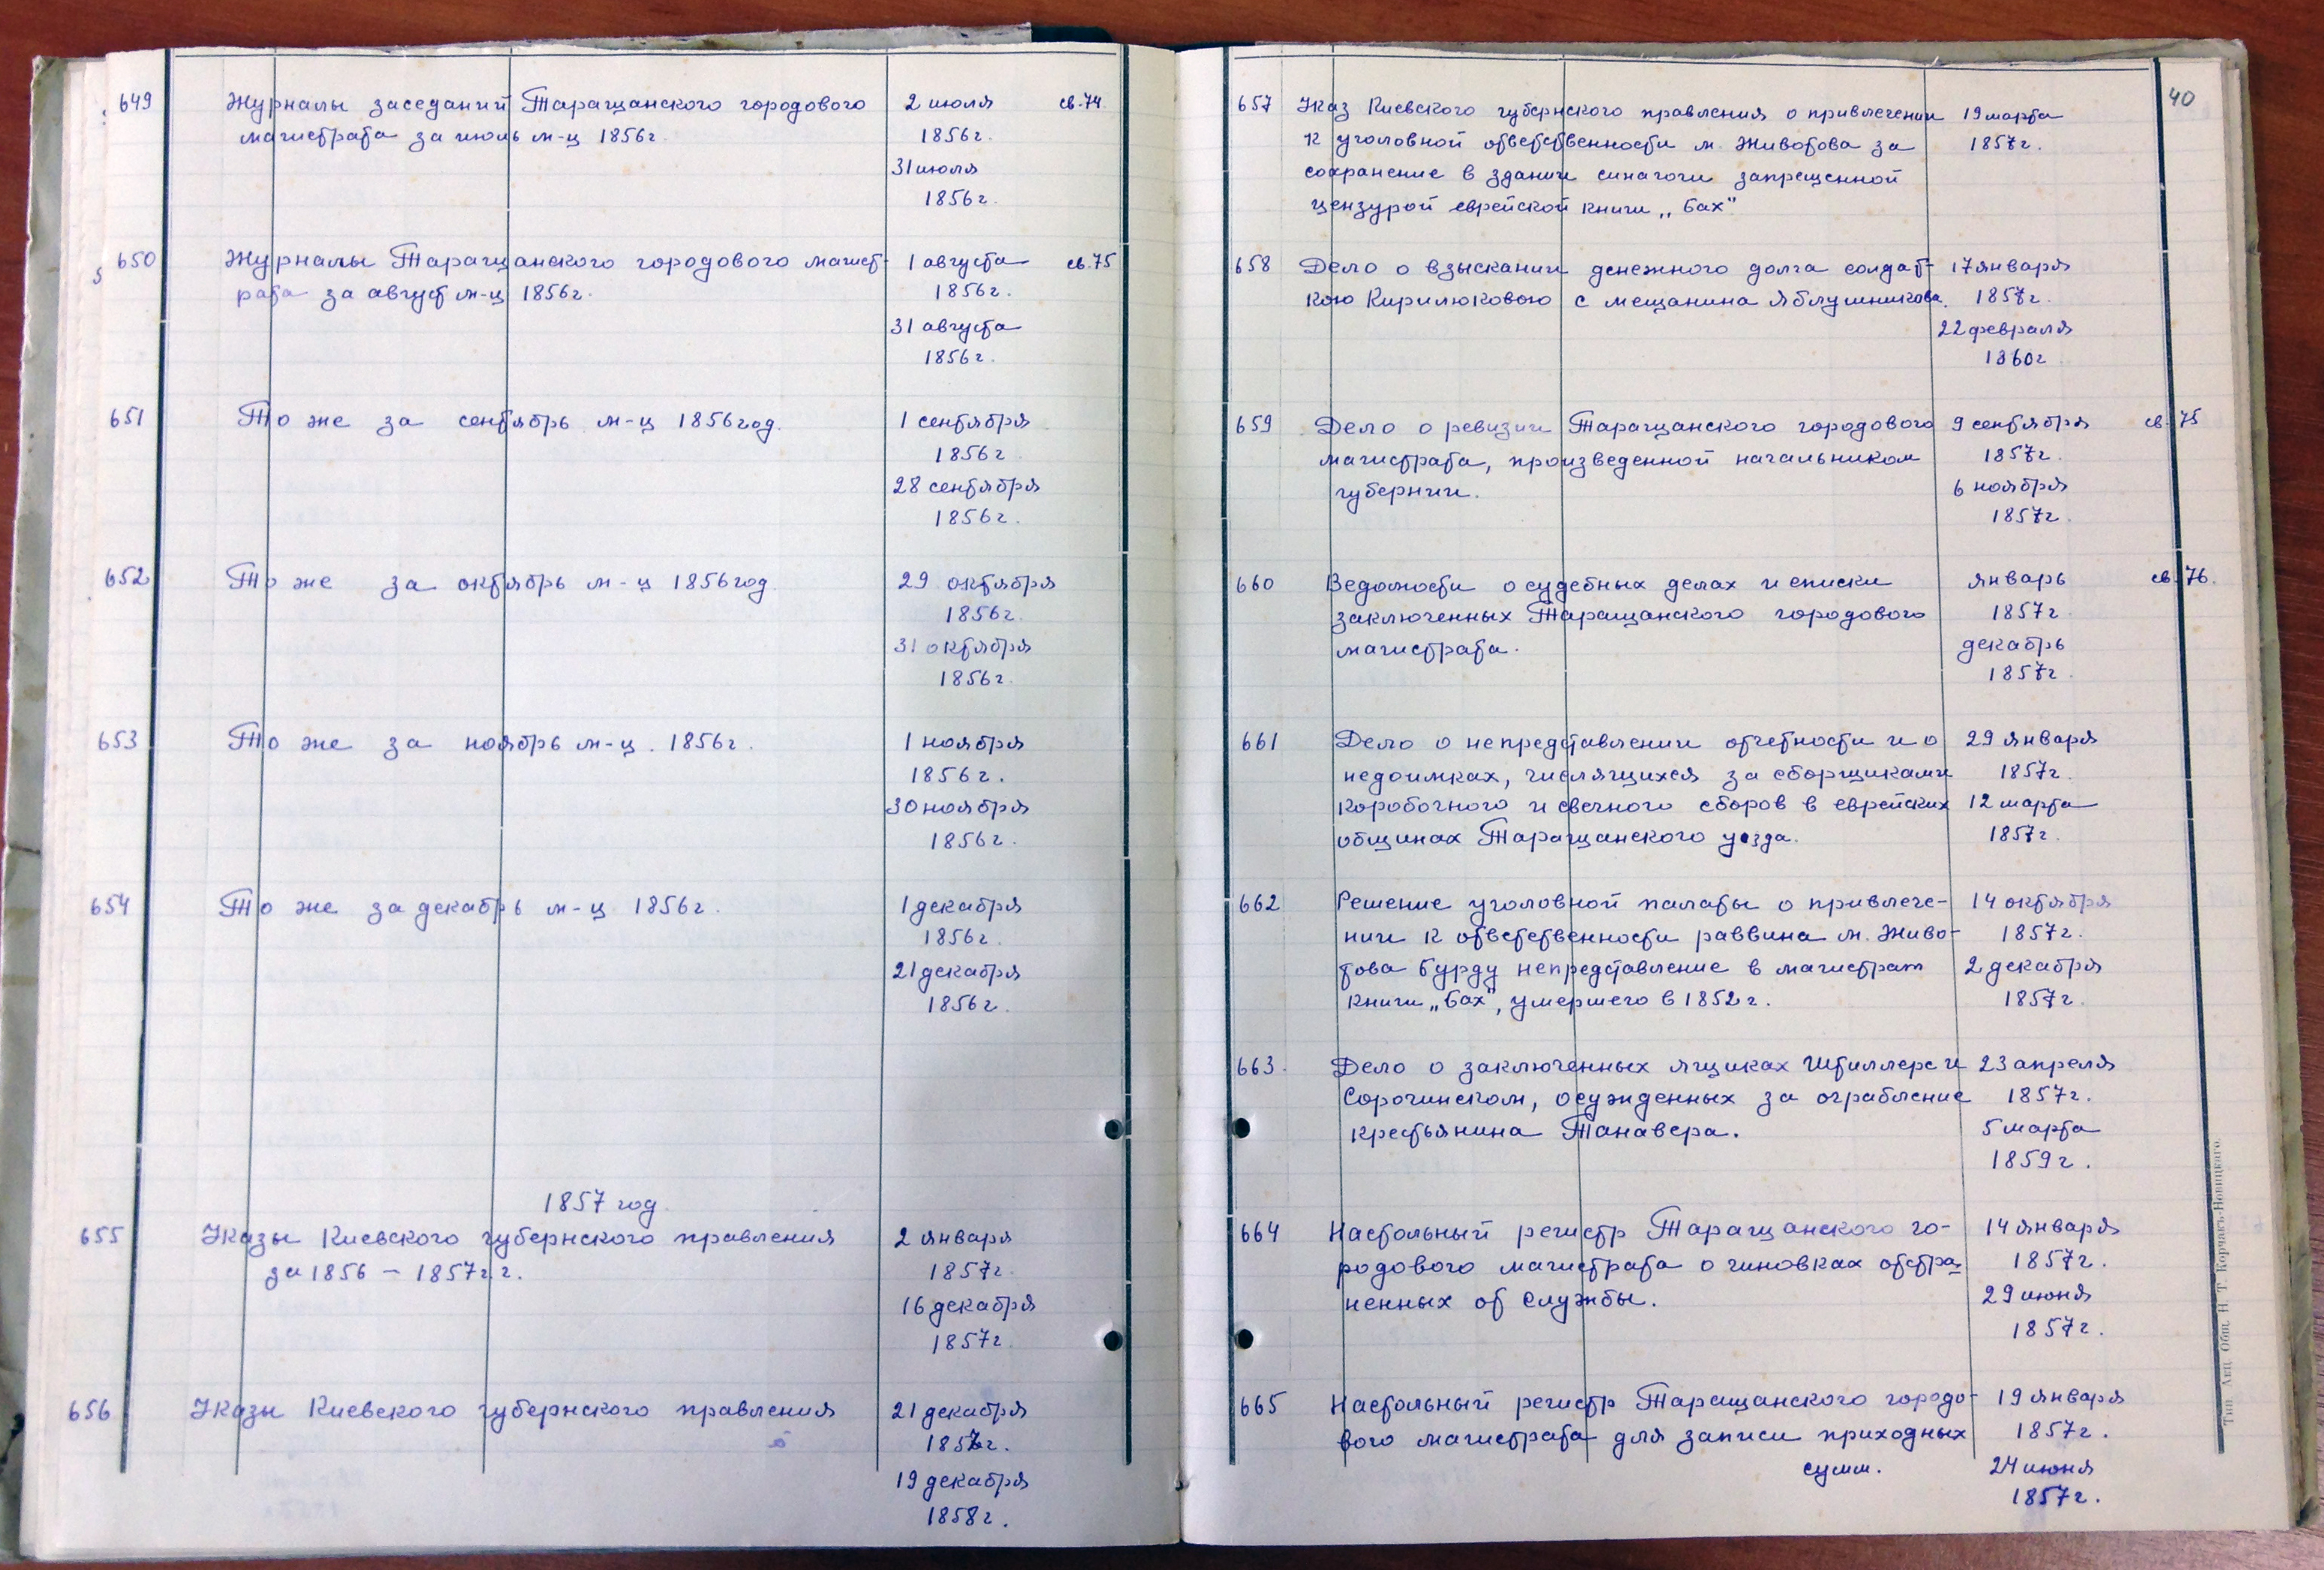 649 Журналы заседаний Таращанского городового 2 июля св. 74
магистрата за июль м-ц 1856г. 1856г.
31 июля
1856г.
650 Журналы Таращанского городового магист- 1 августа св. 75
рата за август м-ц 1856г. 1856г.
31 августа
1856г.
651 То же за сентябрь м-ц 1856 год. 1 сентября
1856г
28 сентября
1856г.
652 То же за октябрь м-ц 1856 год 29 октября
1856г.
31 октября
1856г.
653 То же за ноябрь м-ц. 1856г. 1 ноября
1856г.
30 ноября
1856г.
654 То же за декабрь м-ц 1856г. 1 декабря
1856г.
21 декабря
1856г.
1857 год
655 Указы Киевского губернского правления 2 января
за 1856 – 1857г.г. 1857г.
16 декабря
1857г.
656 Указы Киевского губернского правления 21 декабря
1857г.
19 декабря
1858г.
40
657 Указ Киевского губернского правления о привлечении 19 марта
к уголовной ответственности м. Животова за 1857г.
сохранение в здании синагоги запрещенной
цензурой еврейской книги „Бах"
658 Дело о взыскании денежного долга солдат- 17 января
кою Кирилюковою с мещанина Яблушникова. 1857г.
22 февраля
1860г
659 Дело о ревизии Таращанского городового 9 сентября св. 75
магистрата, произведенной начальником 1857г.
губернии. 6 ноября
1857г.
660 Ведомости о судебных делах и списки январь св. 76.
заключенных Таращанского городового 1857г
магистрата. декабрь
1857г
661 Дело о непредставлении отчетности и о 29 января
недоимках, числящихся за сборщиками 1857г.
коробочного и свечного сборов в еврейских 12 марта
общинах Таращанского уезда. 1857г.
662 Решение уголовной палаты о привлече- 14 октября
нии к ответственности раввина м. Живо- 1857г.
това Бурду непредставление в магистрат 2 декабря
книги „Бах", умершего в 1852г. 1857г.
663 Дело о заключенных ящиках Штиллере и 23 апреля
Сорочинском, осужденных за ограбление 1857г.
крестьянина Танавера. 5 марта
1859г.
664 Настольный регистр Таращанского го- 14 января
родового магистрата о чиновках отстра- 1857г.
ненных от службы. 29 июня
1857г.
665 Настольный регистр Таращанского городо- 19 января
вого магистрата для записи приходных 1857г.
сумм. 24 июня
1857г.
Тип. Акц. Общ. Н. Т. Корчакъ-Новицкаго.